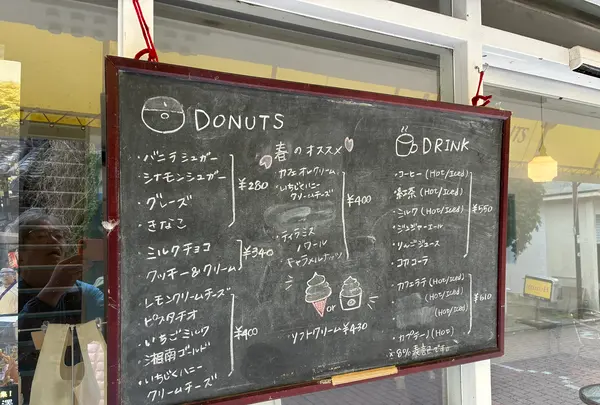 DONUTS
・バニラシュガー
・シナモンシュガー
・グレーズ
・きなこ
¥280
・ミルクチョコ
・クッキー&クリーム
¥340
・レモンクリームチーズ
・ピスタチオ
・いちごミルク
・湘南ゴールド
・いちじくハニー
クリームチーズ
¥400
春のオススメ
・カフェオレクリーム
・いちじくハニー
クリームチーズ
・ティラミス
・ノワール
・キャラメルナッツ
¥400
or
・ソフトクリーム ¥430
DRINK
・コーヒー (HOT/ICED)
・紅茶 (HOT/ICED)
・ミルク (HOT/ICED)
・ジンジャーエール
・りんごジュース
・コカコーラ
¥550
・カフェラテ (HOT/ICED)
(HOT/ICED)
(HOT/ICED)
・カプチーノ (HOT)